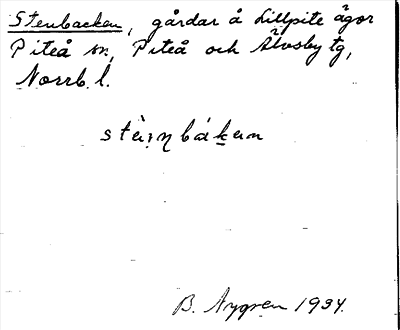 Stenbacken, gårdar å Lillpite ägor
Piteå sn, Piteå och Älvsby tg,
Norrb. l.
stèi̯n bákan
B. Nygren 1934.